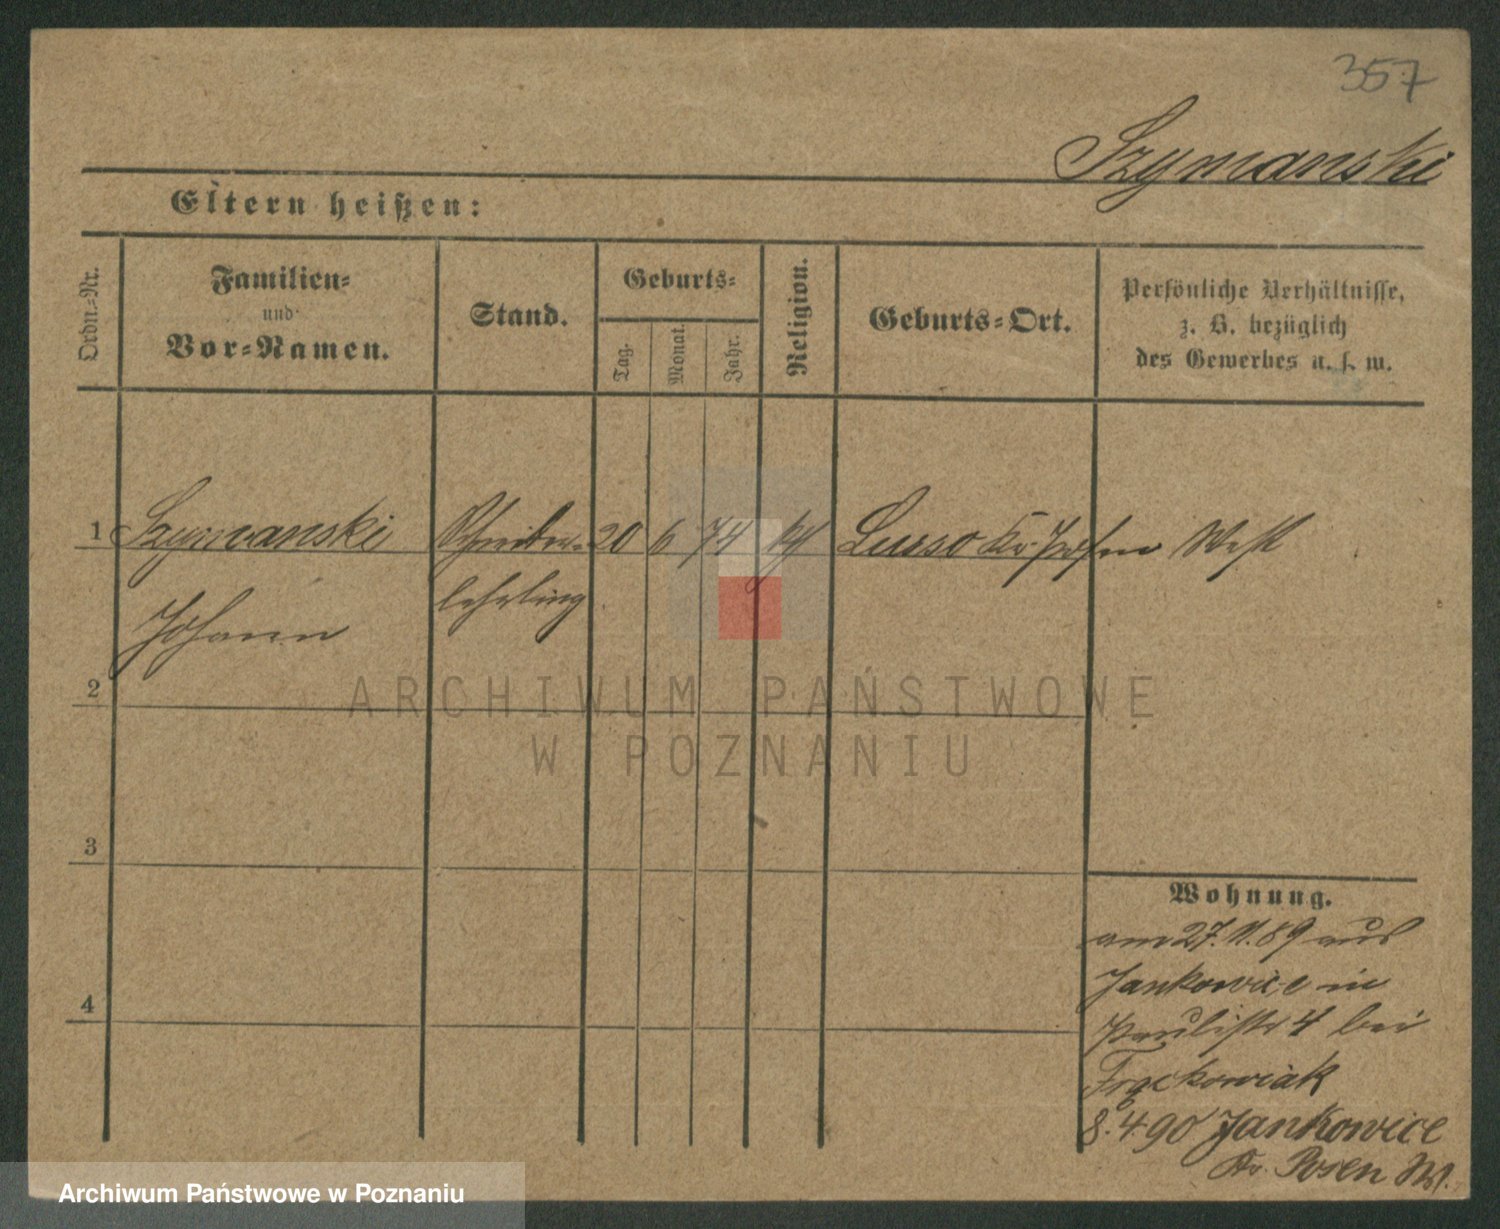 357
Szymanski
Eltern heißen:
Ordn.-Nr.
Familien-
und
Vor-Namen.
Stand.
Geburts-
Tag.
Monat.
Jahr.
Religion.
Geburts-Ort.
Persönliche Verhältnisse,
z. B. bezüglich
des Gewerbes u. s. w.
1 Szymanski Schreiber- 20 6 74 kth Lusso Kr. Posen West
Johann lehrling
2
ARCHIWUM PAŃSTWOWE
W POZNANIU
3
4
Wohnung.
am 27.11.89 aus
Jankowice in
Paulistr 4 bei
Frąckowiak
8.4.90 Jankowice
Kr. Posen W.
Archiwum Państwowe w Poznaniu